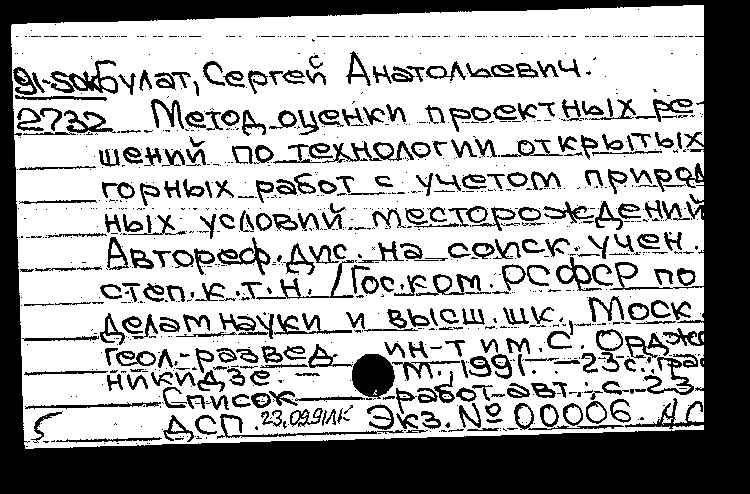 91-5ок Булат, Сергей Анатольевич.
2732 Метод оценки проектных ре-
шений по технологии открытых
горных работ с учетом природ
ных условий месторождений
Автореф. дис. на соиск. учен.
степ. к.т.н. /Гос.ком. РСФСР по
делам науки и высш. шк., Моск.
геол.-развед. ин-т им. С. Орджо
никидзе. – М., 1991. – 23 с.: граф
Список работ авт.: с. 23
5 ДСП. 23,09.91ЛК Экз. № 00006.